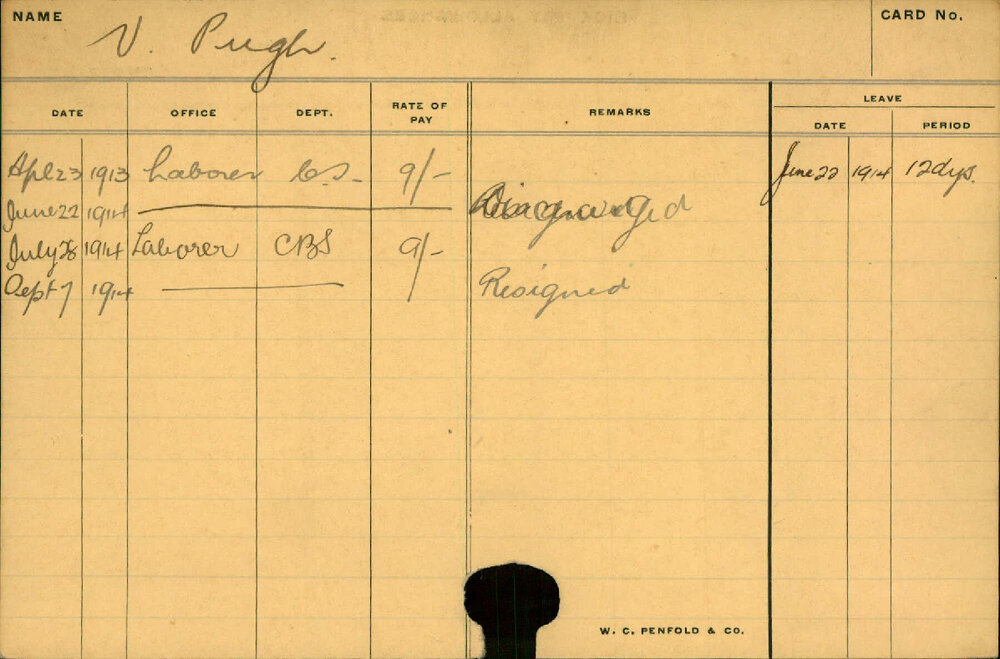 NAME V. Pugh. CARD No.
DATE OFFICE DEPT. RATE OF PAY REMARKS LEAVE
DATE PERIOD
Apl 23 1913 Laborer C.S. 9/- June 22 1914 12 dys.
June 22 1914
July 28 1914 Laborer CBS 9/-
Sept 7 1914 Resigned
W. C. PENFOLD & CO.